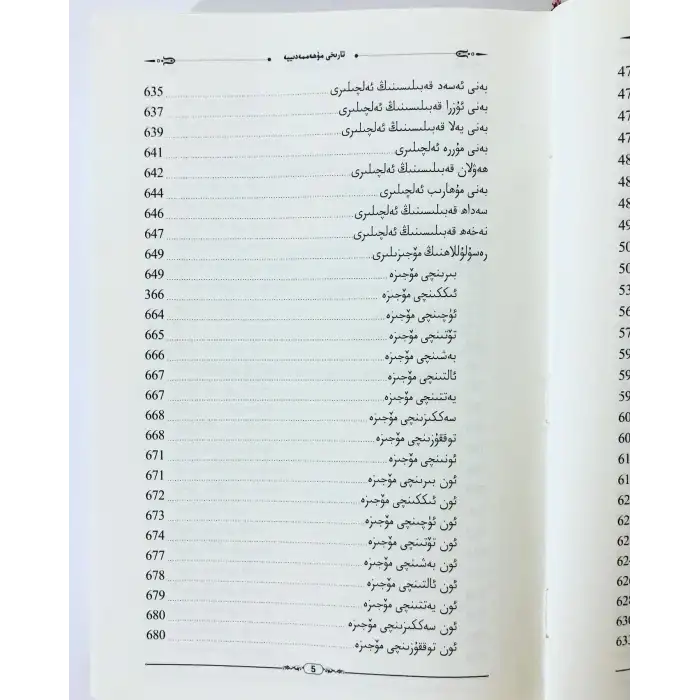 تارىخى مۇھەممەدىييە
بەنى ئەسەد قەبىلىسىنىڭ ئەلچىلىرى 635
بەنى ئۇزرا قەبىلىسىنىڭ ئەلچىلىرى 637
بەنى بەلا قەبىلىسىنىڭ ئەلچىلىرى 639
بەنى مۇررە ئەلچىلىرى 641
ھەۋلان قەبىلىسىنىڭ ئەلچىلىرى 642
بەنى مۇھارىب ئەلچىلىرى 644
سەداھ قەبىلىسىنىڭ ئەلچىلىرى 646
نەخەھ قەبىلىسىنىڭ ئەلچىلىرى 647
رەسۇلۇللاھنىڭ مۆجىزىلىرى 649
بىرىنچى مۆجىزە 649
ئىككىنچى مۆجىزە 366
ئۈچىنچى مۆجىزە 664
تۆتىنچى مۆجىزە 665
بەشىنچى مۆجىزە 666
ئالتىنچى مۆجىزە 667
يەتتىنچى مۆجىزە 667
سەككىزىنچى مۆجىزە 668
توققۇزىنچى مۆجىزە 668
ئونىنچى مۆجىزە 671
ئون بىرىنچى مۆجىزە 671
ئون ئىككىنچى مۆجىزە 672
ئون ئۈچىنچى مۆجىزە 673
ئون تۆتىنچى مۆجىزە 674
ئون بەشىنچى مۆجىزە 677
ئون ئالتىنچى مۆجىزە 678
ئون يەتتىنچى مۆجىزە 679
ئون سەككىزىنچى مۆجىزە 680
ئون توققۇزىنچى مۆجىزە 680
5